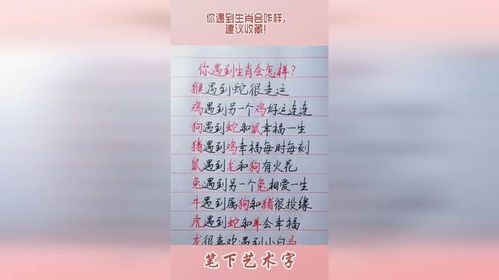 你遇到生肖会咋样,
建议收藏!
你遇到生肖会怎样?
猴遇到蛇很走运
鸡遇到另一个鸡好运连连
狗遇到蛇和鼠幸福一生
猪遇到鸡幸福每时每刻
鼠遇到龙和狗有火花
兔遇到另一个兔相爱一生
牛遇到属狗和猪很投缘
虎遇到蛇和羊会幸福
龙很喜欢遇到小白马
笔下艺术字